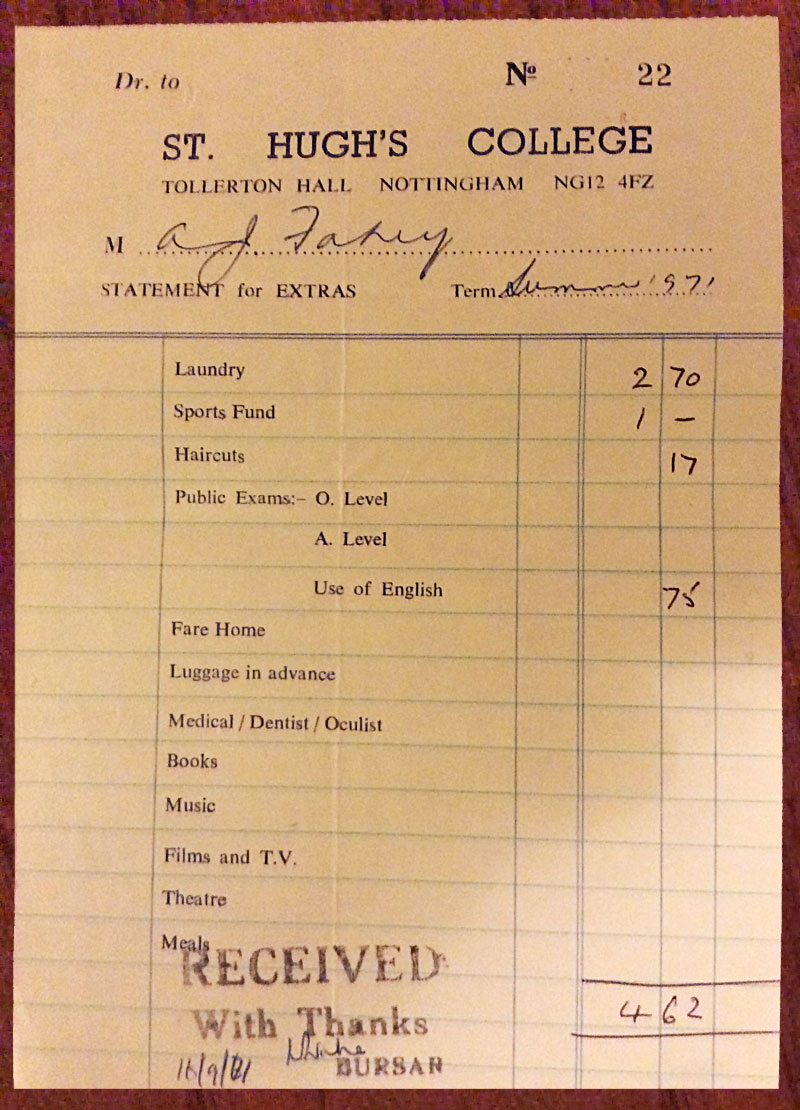 Dr. to № 22
ST. HUGH'S COLLEGE
TOLLERTON HALL NOTTINGHAM NG12 4FZ
M A J. Fahey
STATEMENT for EXTRAS Term Summer 1971
Laundry 2 70
Sports Fund 1 —
Haircuts 17
Public Exams:– O. Level
A. Level
Use of English 75
Fare Home
Luggage in advance
Medical / Dentist / Oculist
Books
Music
Films and T.V.
Theatre
Meals
RECEIVED
4 62
With Thanks
BURSAR